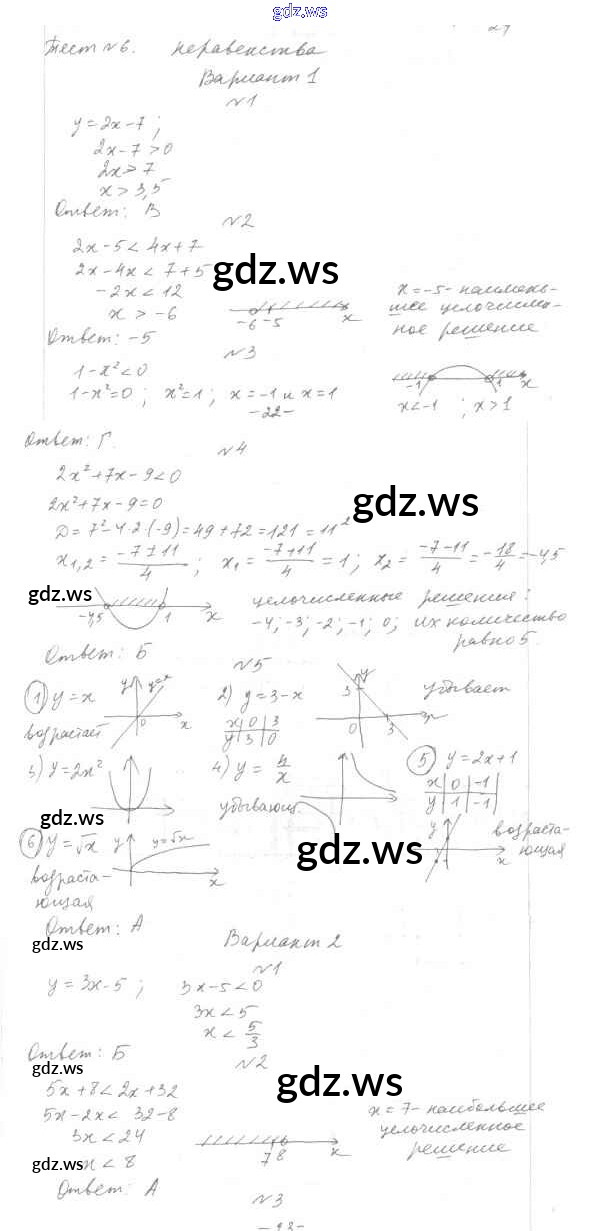 gdz.ws
27
Тест №6. Неравенства
Вариант 1
№1
y = 2x-7;
2x-7>0
2x>7
x > 3,5
Ответ: В
№2
2x-5<4x+7
2x-4x<7+5
-2x<12
x > -6
-6 -5 x
x = -5 - наимень-
шее целочислен-
ное решение
Ответ: -5
gdz.ws
№3
1-x²<0
1-x²=0; x²=1; x=-1 и x=1
-1 1 x
x<-1; x>1
-22-
Ответ: Г.
№4
2x²+7x-9<0
2x²+7x-9=0
gdz.ws
D=7²-4·2·(-9)=49+72=121=11²
x1,2 = -7±11/4; x1 = -7+11/4 = 1; x2 = -7-11/4 = -18/4 = -4,5
gdz.ws
-4,5 1 x
целочисленные решения:
-4; -3; -2; -1; 0; их количество
равно 5.
Ответ: Б
№5
1) y=x
возрастает
y y=x 0 x
2) y=3-x
x 0 3
y 3 0
y 3 0 3
убывает
3) y=2x²
4) y = k/x
убывающ.
5) y=2x+1
x 0 -1
y 1 -1
y x
возраста-
ющая
gdz.ws
gdz.ws
6) y=√x
возраста-
ющая
y y=√x x
Ответ: А
gdz.ws
Вариант 2
№1
y = 3x-5; 3x-5<0
3x<5
x < 5/3
Ответ: Б
gdz.ws
№2
gdz.ws
5x+8<2x+32
5x-2x< 32-8
3x<24
x < 8
7 8 x
x=7- наибольшее
целочисленное
решение
gdz.ws
Ответ: А
№3